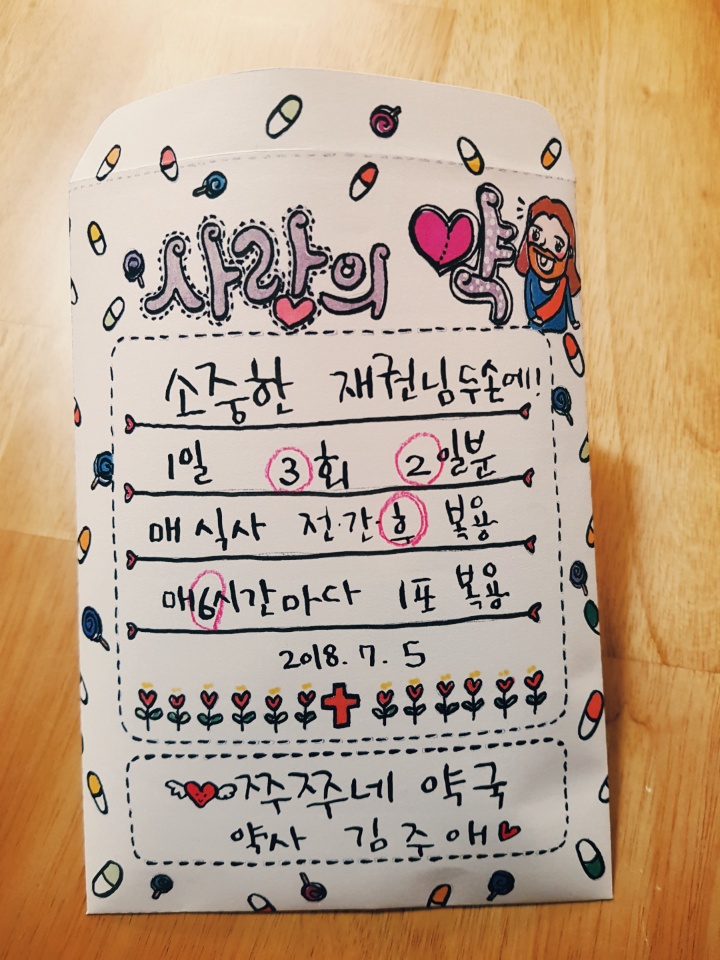 사랑의 약
소중한 재권님 두손에!
1일 3회 2일분
매 식사 전·간·후 복용
매6시간마다 1포 복용
2018. 7. 5
쮸쮸네 약국
약사 김주애